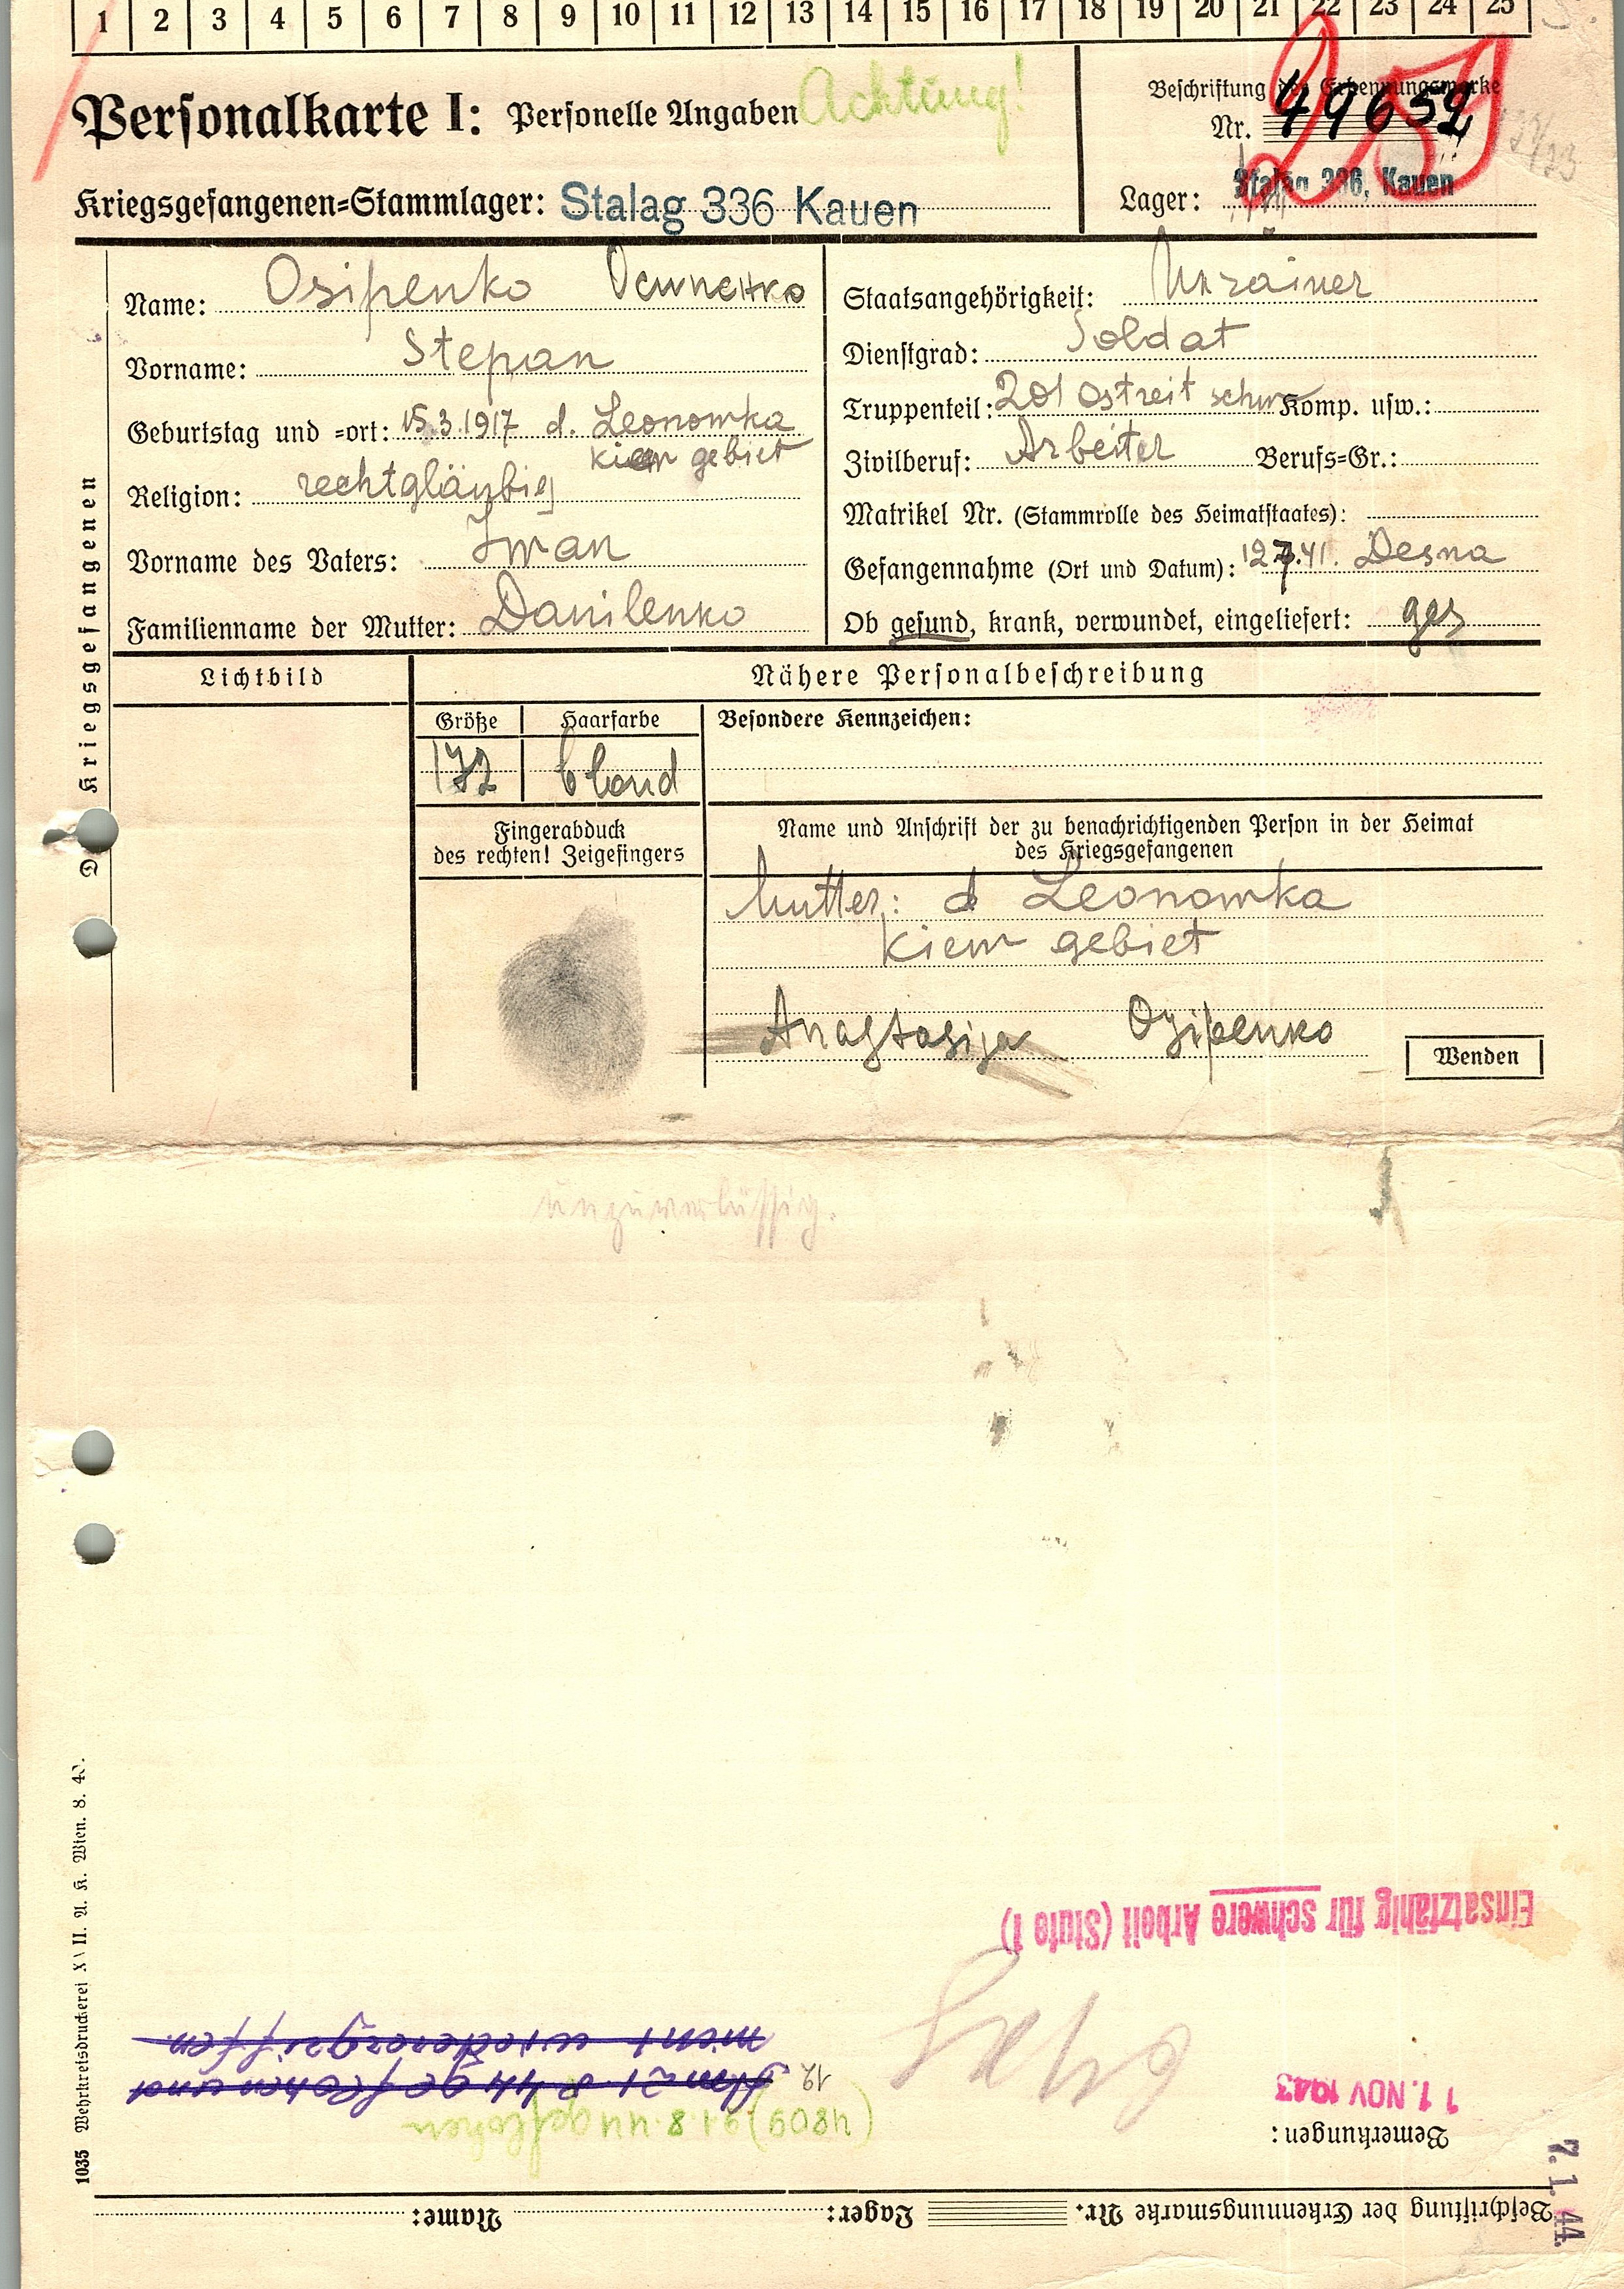 1 2 3 4 5 6 7 8 9 10 11 12 13 14 15 16 17 18 19 20 21 22 23 24 25
Personalkarte I: Personelle Angaben Achtung!
Beschriftung der Erkennungsmarke
Nr. 49652
Kriegsgefangenen=Stammlager: Stalag 336 Kauen
Lager: Stalag 336, Kauen
Des Kriegsgefangenen
Name: Osipenko Осипенко
Vorname: Stepan
Geburtstag und =ort: 15.3.1917 d. Leonowka
kiew gebiet
Religion: rechtgläubig
Vorname des Vaters: Iwan
Familienname der Mutter: Danilenko
Staatsangehörigkeit: Ukrainer
Dienstgrad: Soldat
Truppenteil: 201 Komp. usw.:
Zivilberuf: Arbeiter Berufs=Gr.:
Matrikel Nr. (Stammrolle des Heimatstaates):
Gefangennahme (Ort und Datum): 12.7.41. Desna
Ob gesund, krank, verwundet, eingeliefert: ges
Lichtbild
Nähere Personalbeschreibung
Größe Haarfarbe Besondere Kennzeichen:
172 blond
Fingerabduck
des rechten! Zeigefingers
Name und Anschrift der zu benachrichtigenden Person in der Heimat
des Kriegsgefangenen
Mutter: d Leonowka
kiew gebiet
Anastasija Osipenko
Wenden
unzuverlässig.
1035 Wehrkreisdruckerei XVII. A. K. Wien. 8. 40.
Beschriftung der Erkennungsmarke Nr. Lager: Name:
7. 1. 44.
Bemerkungen:
(4809) 21.8.44 geflohen
11. NOV 1943
12
Am 21.8.44 geflohen und
nicht wiederergriffen.
Einsatzfähig für schwere Arbeit (Stufe 1)